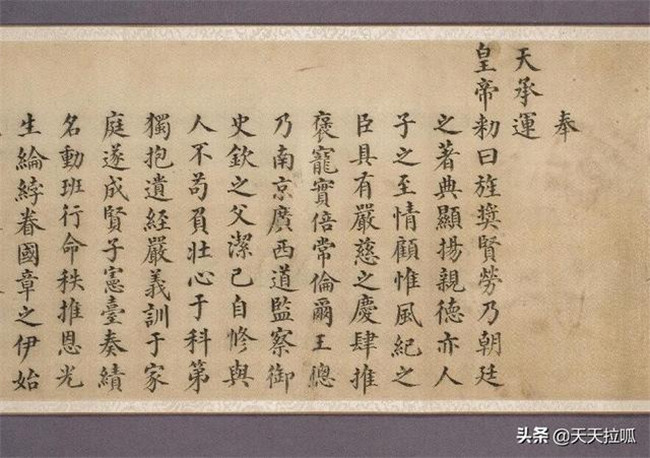 奉
天承運
皇帝勑曰旌奬賢勞乃朝廷
之著典顯揚親德亦人
子之至情顧惟風紀之
臣具有嚴慈之慶肆推
褒寵實倍常倫爾王聰
乃南京廣西道監察御
史欽之父潔己自修與
人不苟負壯心于科第
獨抱遺經嚴義訓于家
庭遂成賢子憲臺奏績
名動班行命秩推恩光
生綸綍眷國章之伊始
头条 @天天拉呱